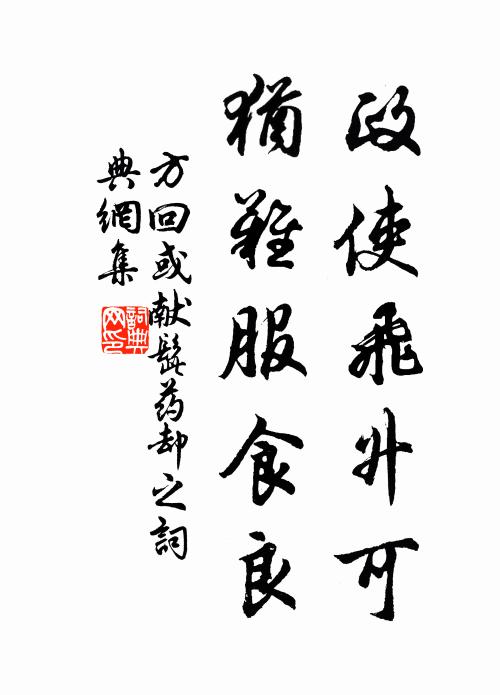 政使飛升可
猶難服食良
方回或献髭药却之詞
典網集
詞典网印